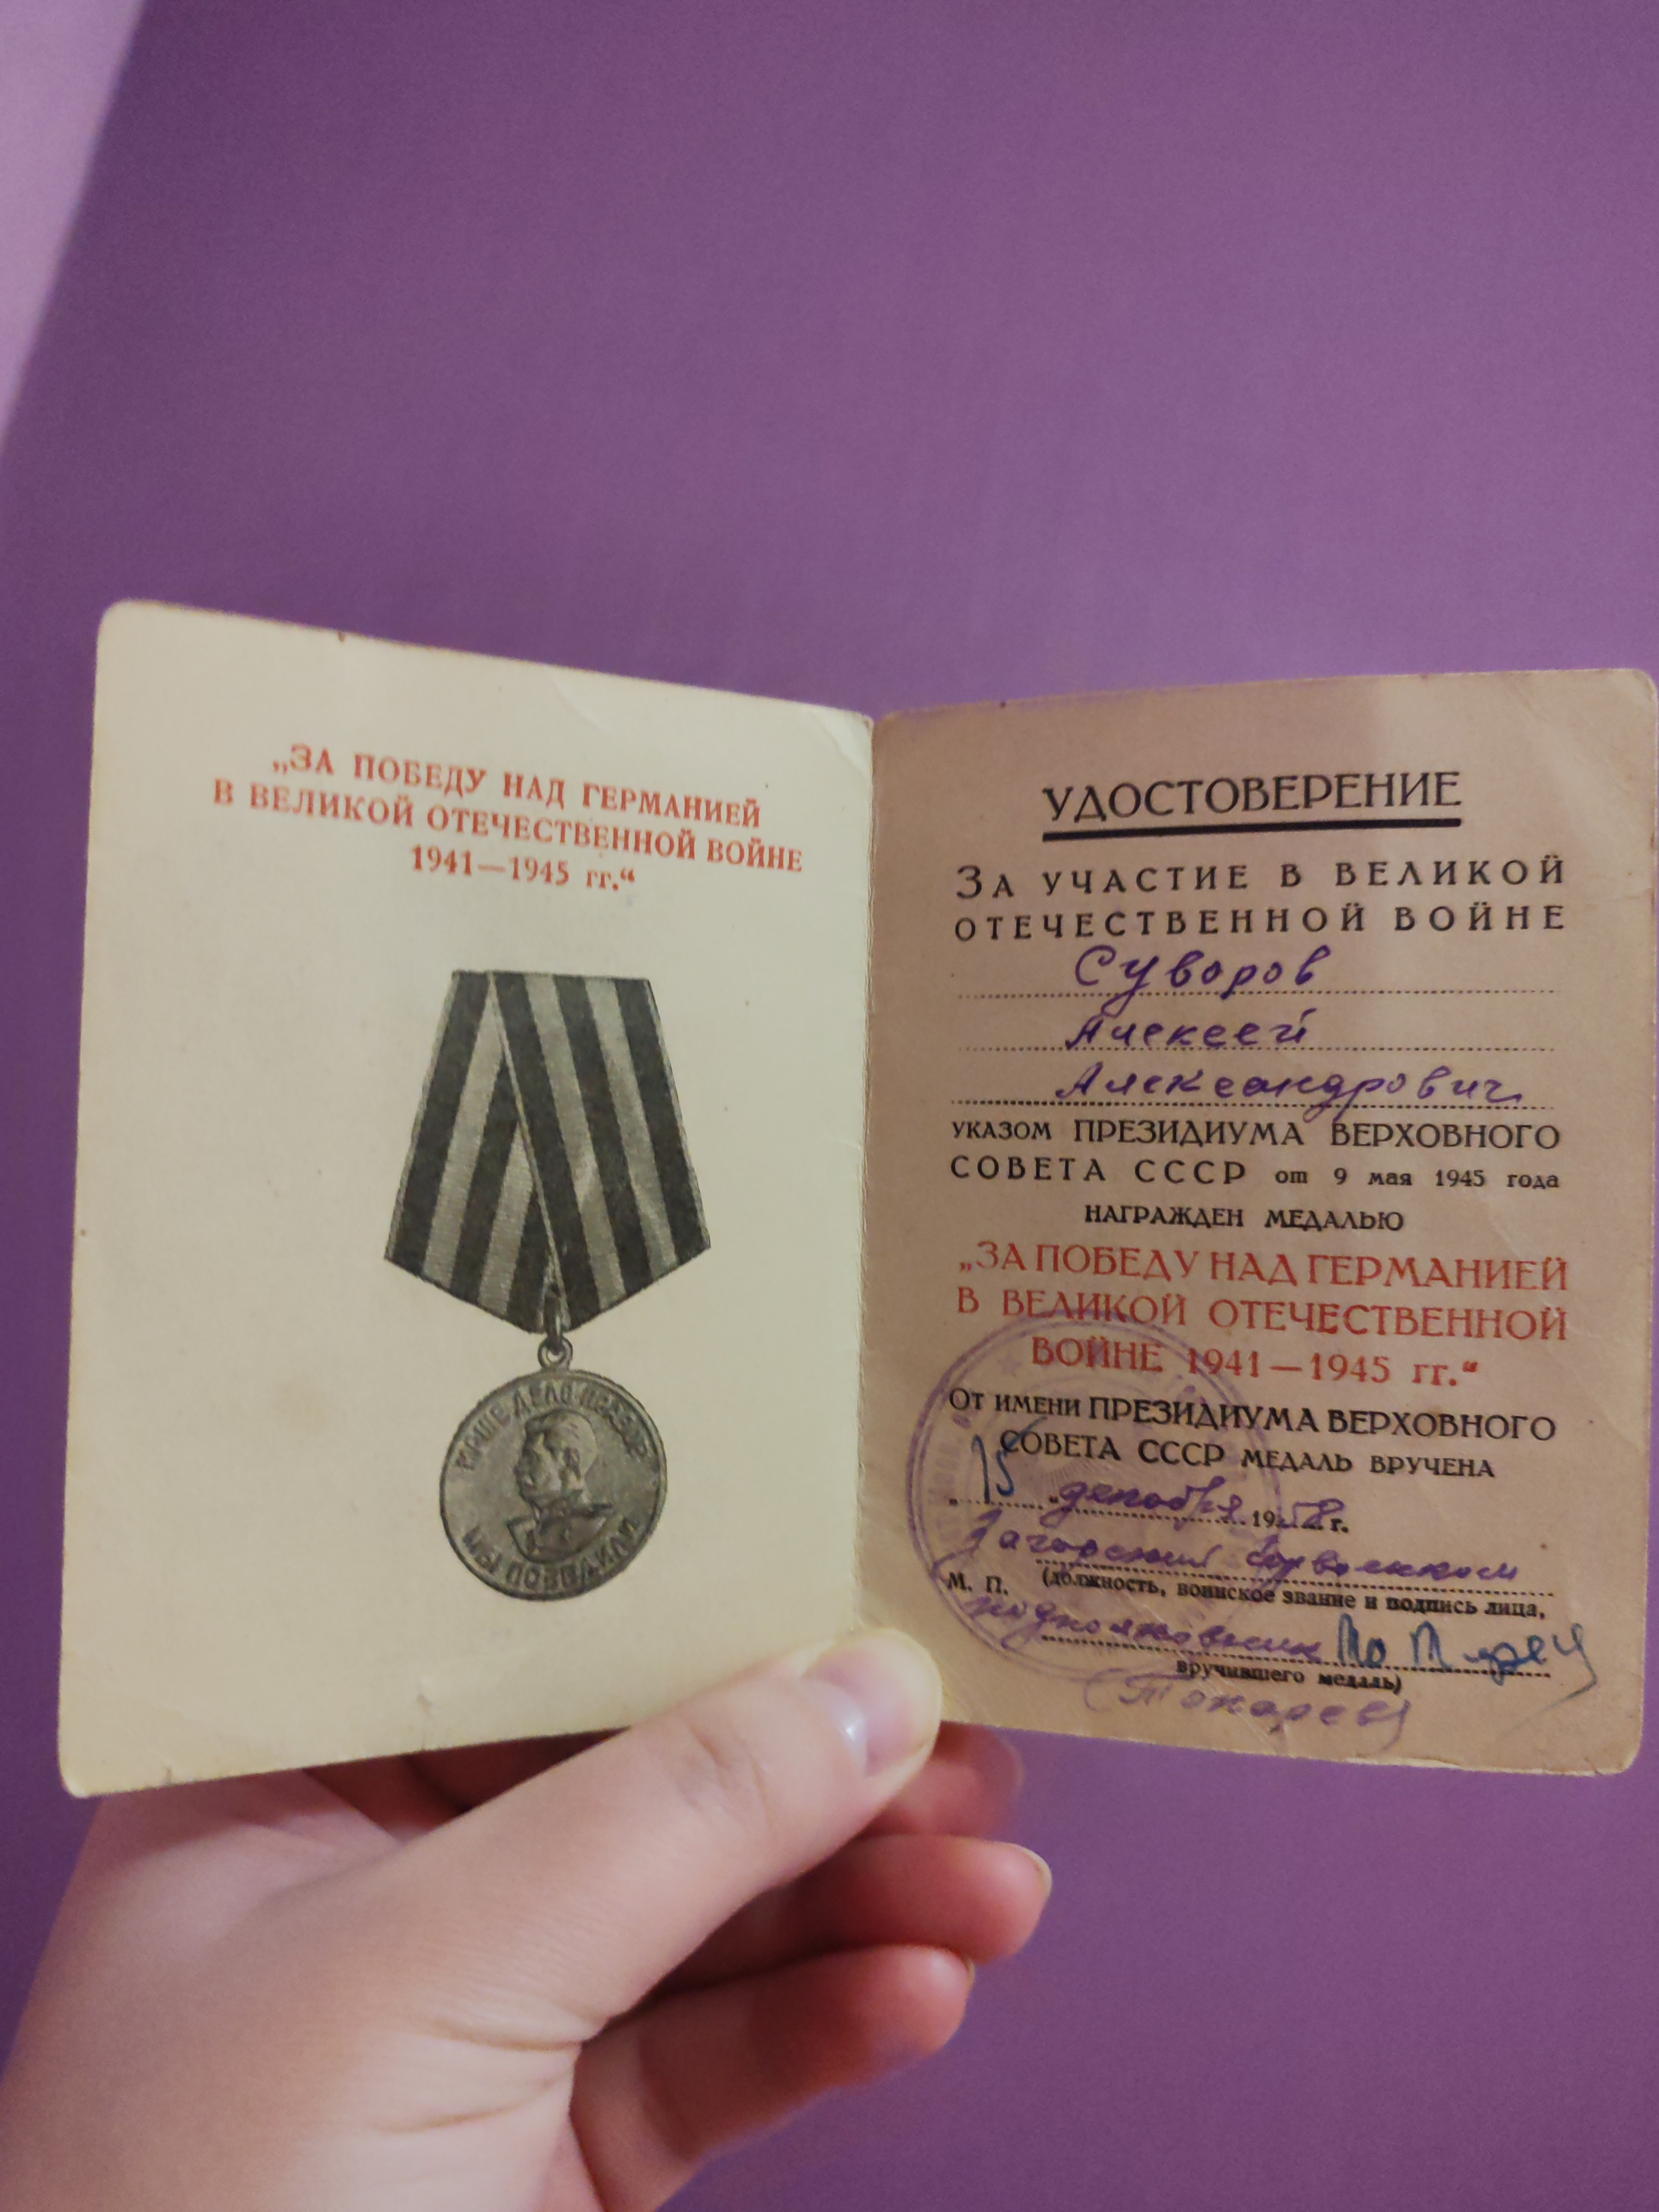 „ЗА ПОБЕДУ НАД ГЕРМАНИЕЙ
В ВЕЛИКОЙ ОТЕЧЕСТВЕННОЙ ВОЙНЕ
1941—1945 гг.“
НАШЕ ДЕЛО ПРАВОЕ
МЫ ПОБЕДИЛИ
УДОСТОВЕРЕНИЕ
ЗА УЧАСТИЕ В ВЕЛИКОЙ
ОТЕЧЕСТВЕННОЙ ВОЙНЕ
Суворов
Алексей
Александрович
УКАЗОМ ПРЕЗИДИУМА ВЕРХОВНОГО
СОВЕТА СССР от 9 мая 1945 года
НАГРАЖДЕН МЕДАЛЬЮ
„ЗА ПОБЕДУ НАД ГЕРМАНИЕЙ
В ВЕЛИКОЙ ОТЕЧЕСТВЕННОЙ
ВОЙНЕ 1941—1945 гг.“
ОТ ИМЕНИ ПРЕЗИДИУМА ВЕРХОВНОГО
СОВЕТА СССР МЕДАЛЬ ВРУЧЕНА
„15„ декабря 1958 г.
Загорский горвоенком
М. П. (должность, воинское звание и подпись лица,
подполковник
вручившего медаль)
(Токарев)